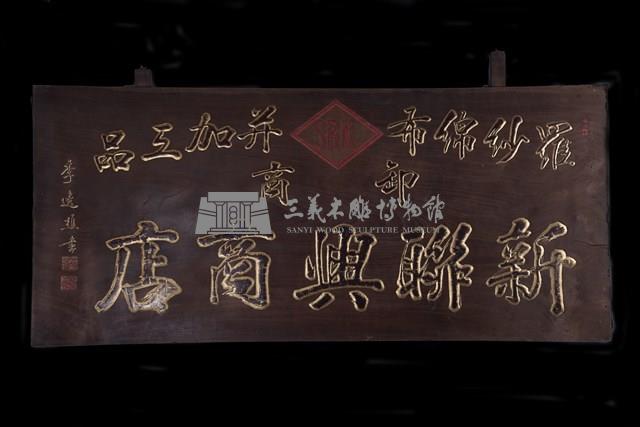 羅紗綿布并加工品
卸商
新聯興商店
李逸樵書
三義木雕博物館
SANYI WOOD SCULPTURE MUSEUM